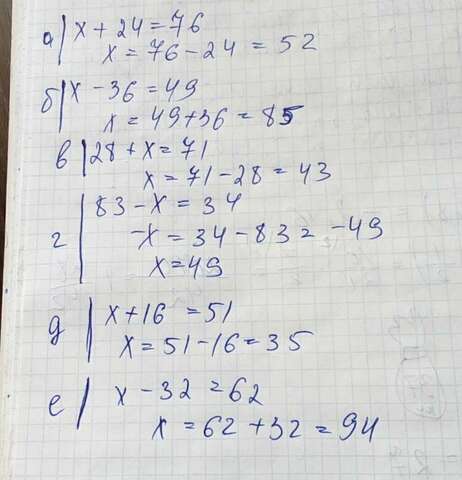 а) x + 24 = 76
x = 76 - 24 = 52
б) x - 36 = 49
x = 49 + 36 = 85
в) 28 + x = 71
x = 71 - 28 = 43
г) 83 - x = 34
-x = 34 - 83 = -49
x = 49
д) x + 16 = 51
x = 51 - 16 = 35
е) x - 32 = 62
x = 62 + 32 = 94